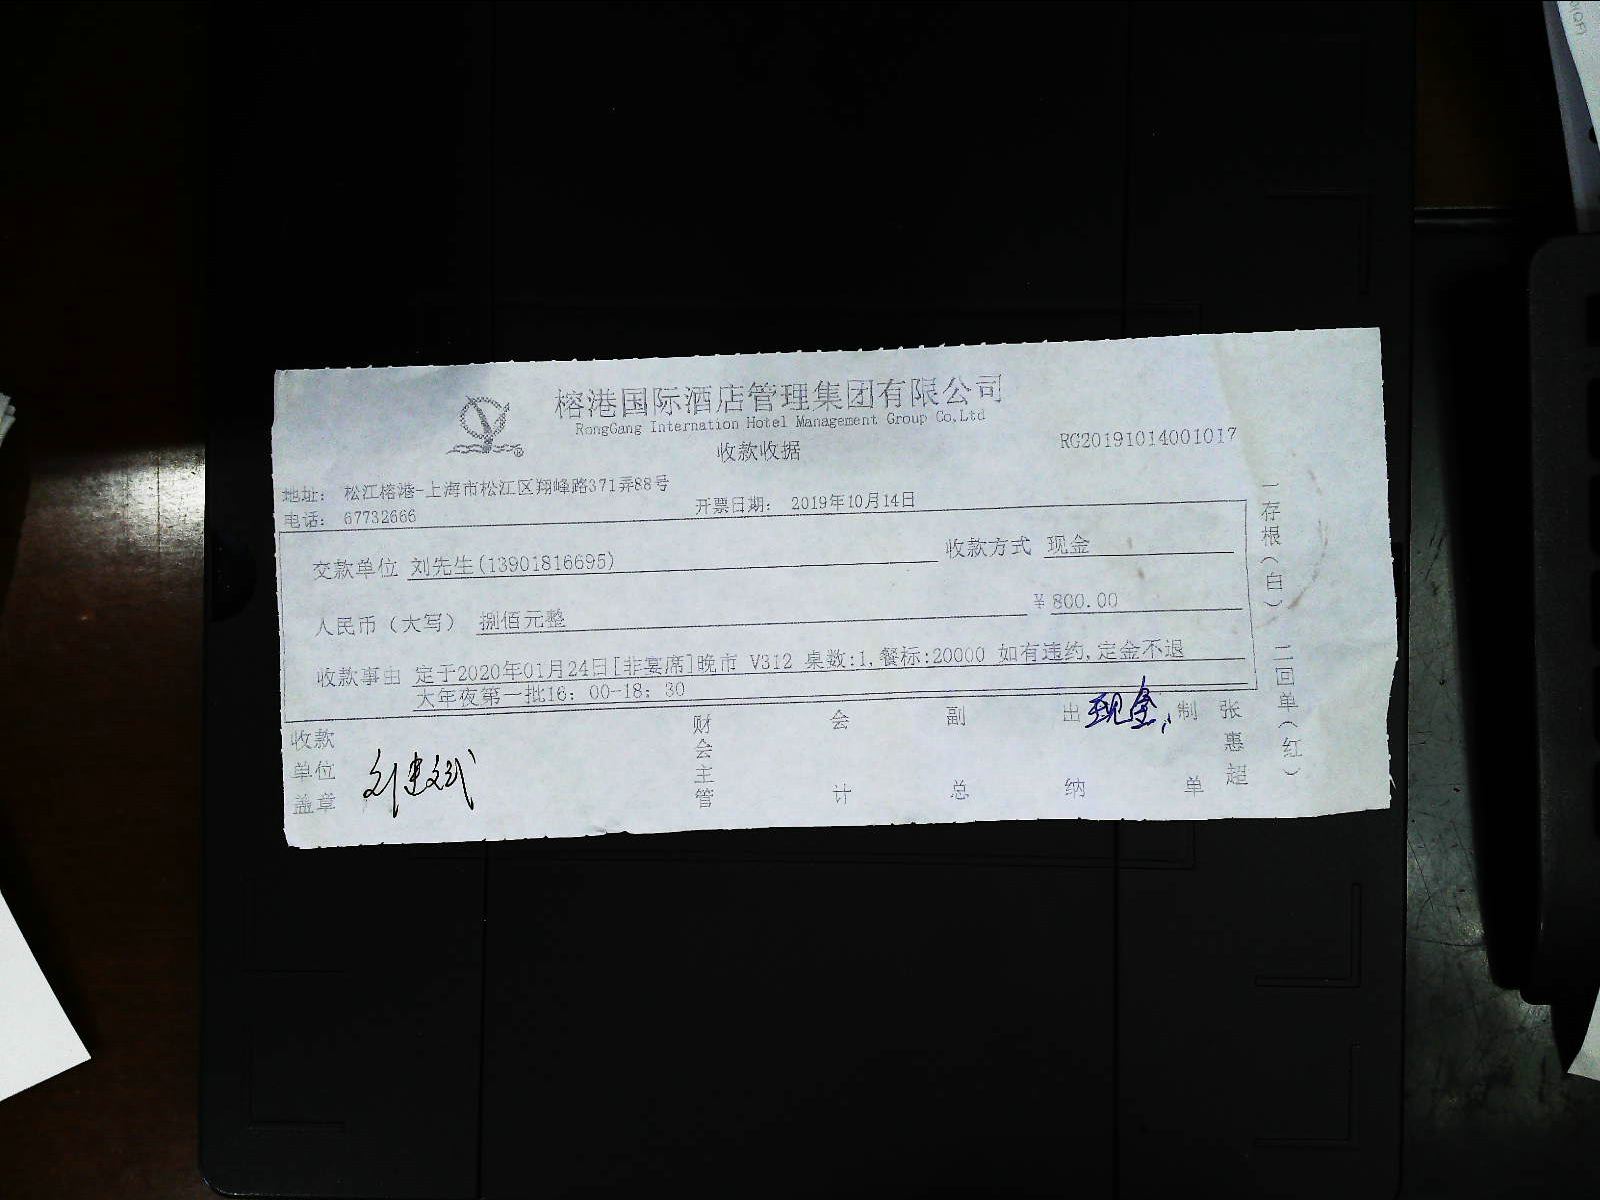 榕港国际酒店管理集团有限公司
RongGang Internation Hotel Management Group Co,Ltd
收款收据
RG20191014001017
地址： 松江榕港-上海市松江区翔峰路371弄88号
电话： 67732666
开票日期： 2019年10月14日
交款单位 刘先生(13901816695)
收款方式 现金
人民币（大写） 捌佰元整
¥ 800.00
收款事由 定于2020年01月24日[非宴席]晚市 V312 桌数:1,餐标:20000 如有违约,定金不退
大年夜第一批16：00-18：30
收款单位盖章
刘建斌
财会主管
会计
副总
出纳
现金
制单
张惠超
一存根（白）
二回单（红）
®